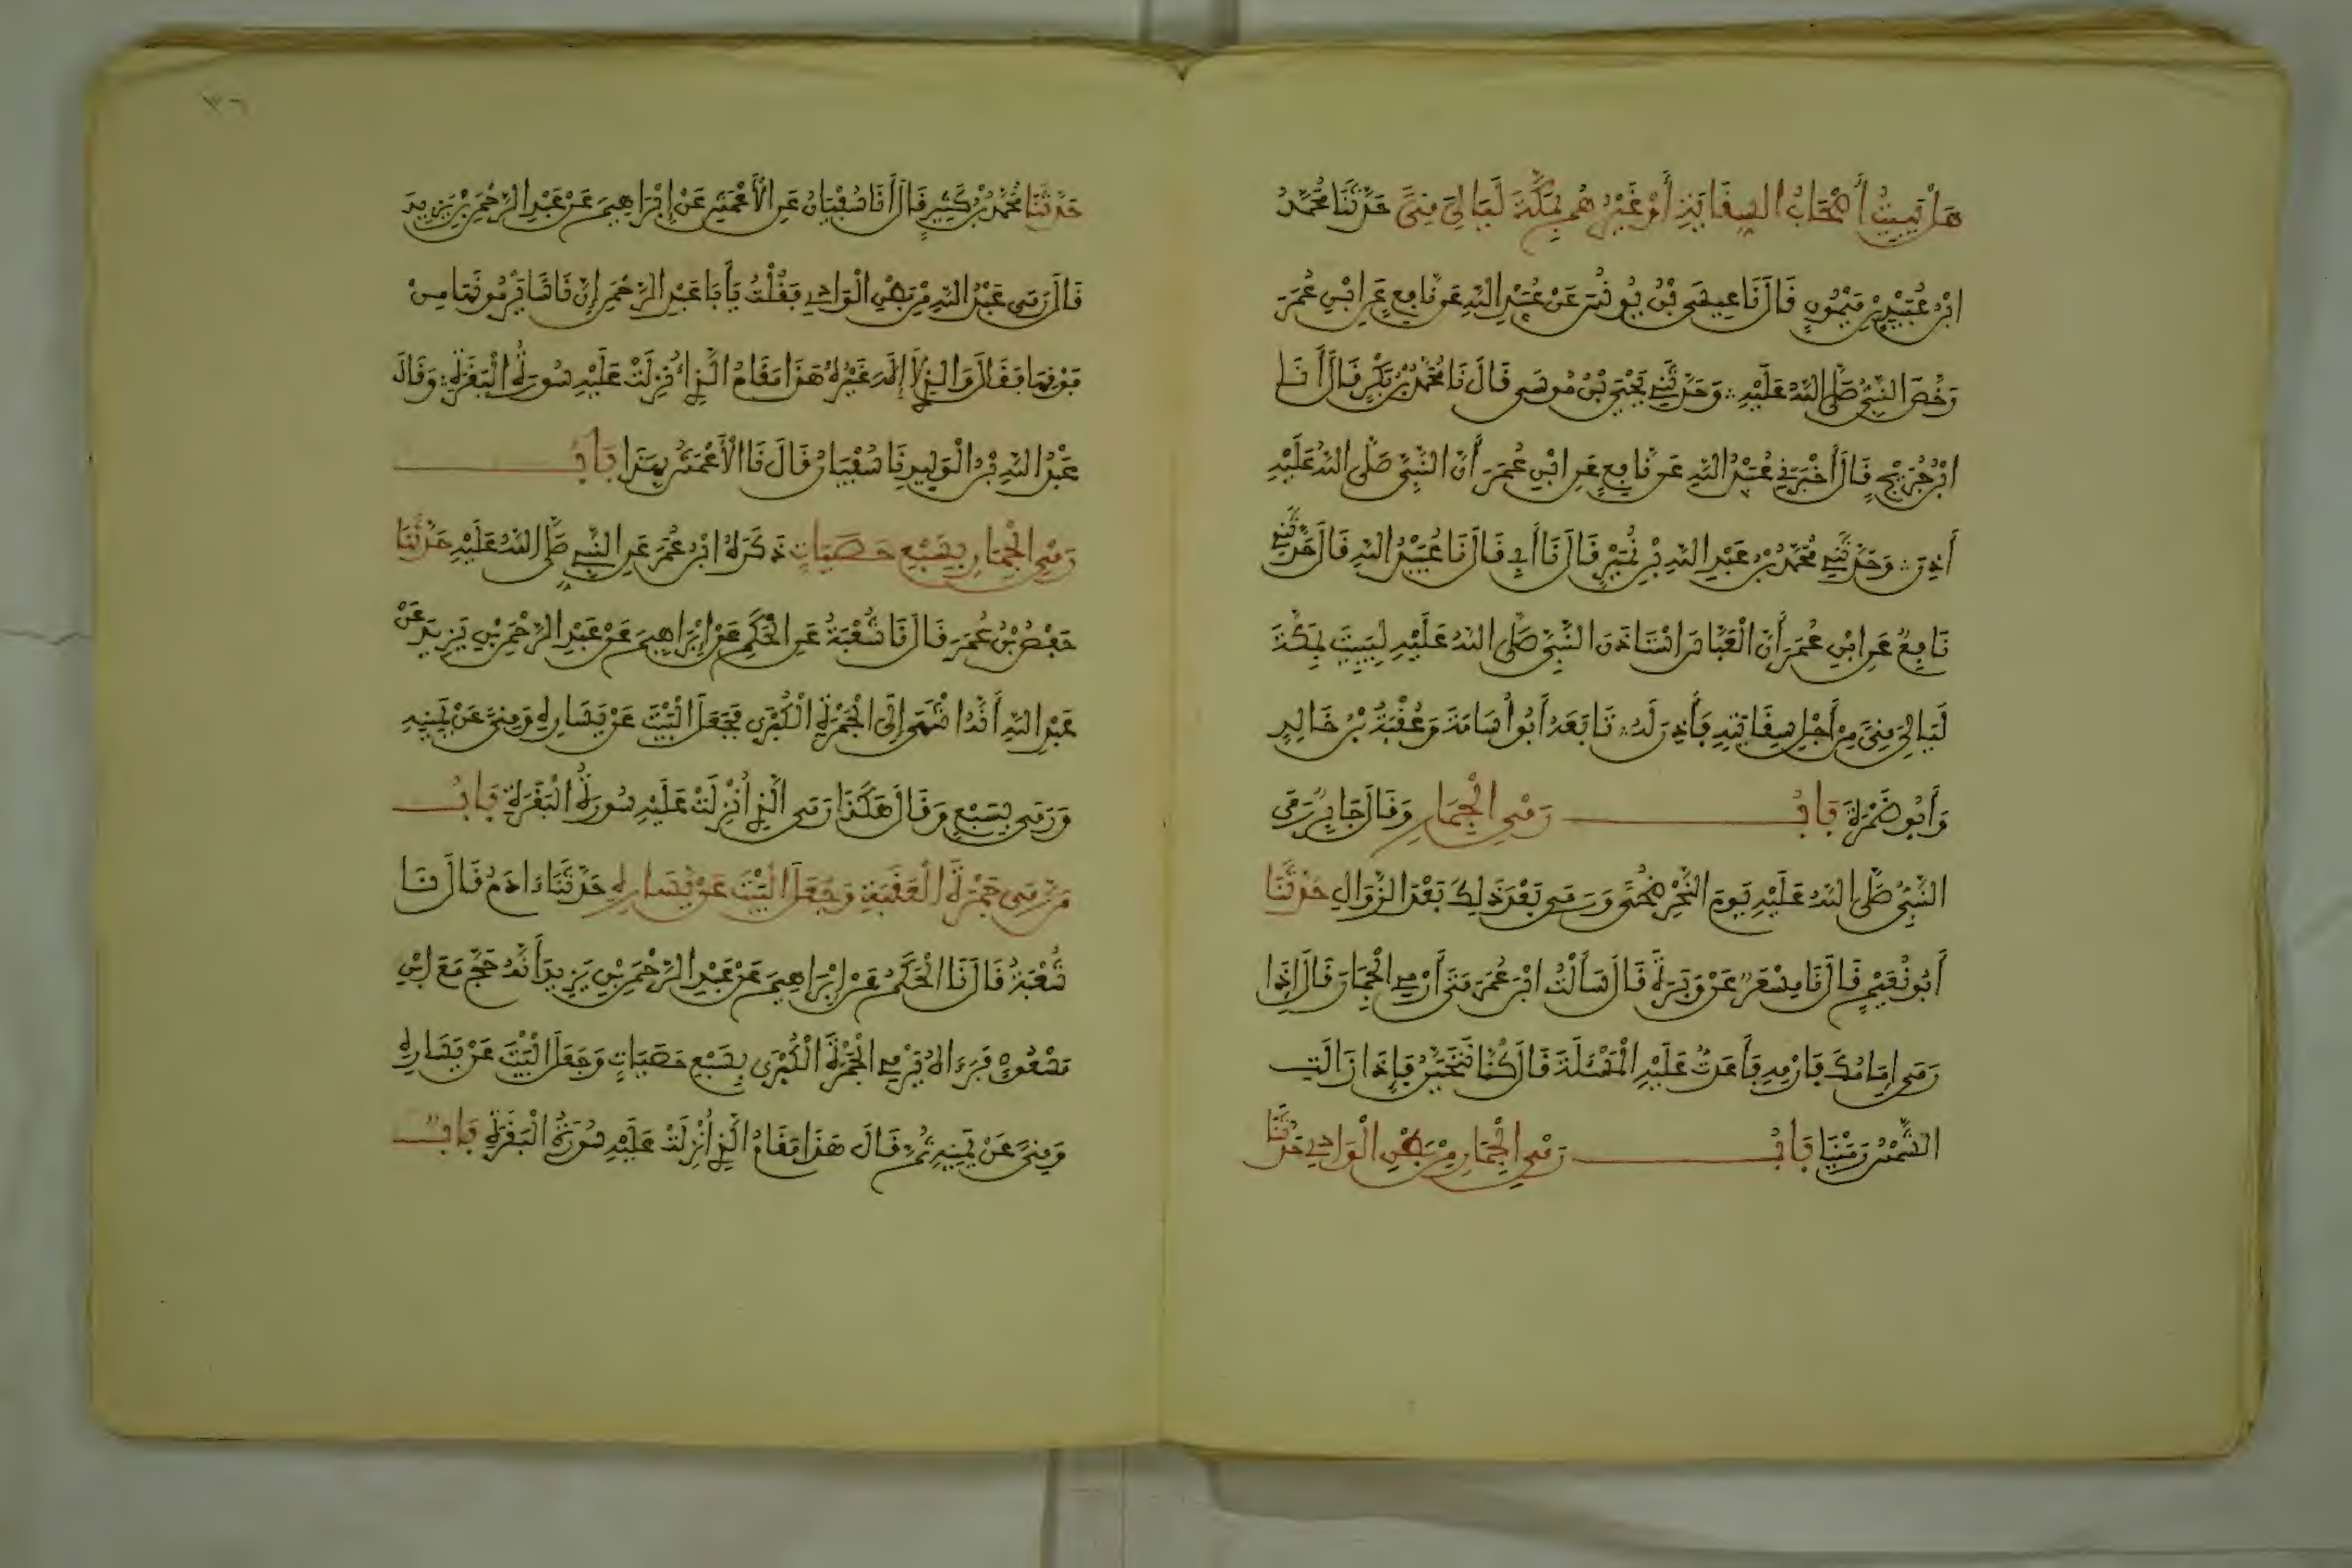 هَلْ يَبِيتُ أَصْحَابُ السِّقَايَةِ أَوْ غَيْرُهُمْ بِمَكَّةَ لَيَالِيَ مِنًى حَدَّثَنَا مُحَمَّدُ
ابْنُ عُبَيْدِ بْنِ مَيْمُونٍ قَالَ نَا عِيسَى بْنُ يُونُسَ عَنْ عُبَيْدِ اللهِ عَنْ نَافِعٍ عَنِ ابْنِ عُمَرَ
رَخَّصَ النَّبِيُّ صَلَّى اللهُ عَلَيْهِ ∴ وَحَدَّثَنِي يَحْيَى بْنُ مُوسَى قَالَ نَا مُحَمَّدُ بْنُ بَكْرٍ قَالَ أَنَا
ابْنُ جُرَيْجٍ قَالَ أَخْبَرَنِي عُبَيْدُ اللهِ عَنْ نَافِعٍ عَنِ ابْنِ عُمَرَ أَنَّ النَّبِيَّ صَلَّى اللهُ عَلَيْهِ
أَذِنَ ∴ وَحَدَّثَنِي مُحَمَّدُ بْنُ عَبْدِ اللهِ بْنِ نُمَيْرٍ قَالَ نَا أَبِي قَالَ نَا عُبَيْدُ اللهِ قَالَ حَدَّثَنِي
نَافِعٌ عَنِ ابْنِ عُمَرَ أَنَّ الْعَبَّاسَ اسْتَاذَنَ النَّبِيَّ صَلَّى اللهُ عَلَيْهِ لِيَبِيتَ بِمَكَّةَ
لَيَالِيَ مِنًى مِنْ أَجْلِ سِقَايَتِهِ فَأَذِنَ لَهُ ∴ تَابَعَهُ أَبُو أُسَامَةَ وَعُقْبَةُ بْنُ خَالِدٍ
وَأَبُو ضَمْرَةَ بَابُ رَمْيِ الْجِمَارِ وَقَالَ جَابِرٌ رَمَى
النَّبِيُّ صَلَّى اللهُ عَلَيْهِ يَوْمَ النَّحْرِ ضُحًى وَرَمَى بَعْدَ ذَلِكَ بَعْدَ الزَّوَالِ حَدَّثَنَا
أَبُو نُعَيْمٍ قَالَ نَا مِسْعَرٌ عَنْ وَبَرَةَ قَالَ سَأَلْتُ ابْنَ عُمَرَ مَتَى أَرْمِي الْجِمَارَ قَالَ إِذَا
رَمَى إِمَامُكَ فَارْمِهِ فَأَعَدتُّ عَلَيْهِ الْمَسْئَلَةَ قَالَ كُنَّا نَتَحَيَّنُ فَإِذَا زَالَتِ
الشَّمْسُ رَمَيْنَا بَابُ رَمْيِ الْجِمَارِ مِنْ بَطْنِ الْوَادِي حَدَّثَنَا
٣٦
حَدَّثَنَا مُحَمَّدُ بْنُ كَثِيرٍ قَالَ أَنَا سُفْيَانُ عَنِ الْأَعْمَشِ عَنْ إِبْرَاهِيمَ عَنْ عَبْدِ الرَّحْمَنِ بْنِ يَزِيدَ
قَالَ رَمَى عَبْدُ اللهِ مِنْ بَطْنِ الْوَادِي فَقُلْتُ يَأَبَا عَبْدِ الرَّحْمَنِ إِنَّ نَاسًا يَرْمُونَهَا مِنْ
فَوْقِهَا فَقَالَ وَالَّذِي لَا إِلَهَ غَيْرُهُ هَذَا مَقَامُ الَّذِي أُنْزِلَتْ عَلَيْهِ سُورَةُ الْبَقَرَةِ ∴ وَقَالَ
عَبْدُ اللهِ بْنُ الْوَلِيدِ نَا سُفْيَانُ قَالَ نَا الْأَعْمَشُ بِهَذَا بَابُ
رَمْيِ الْجِمَارِ بِسَبْعِ حَصَيَاتٍ ذَكَرَهُ ابْنُ عُمَرَ عَنِ النَّبِيِّ صَلَّى اللهُ عَلَيْهِ حَدَّثَنَا
حَفْصُ بْنُ عُمَرَ قَالَ نَا شُعْبَةُ عَنِ الْحَكَمِ عَنْ إِبْرَاهِيمَ عَنْ عَبْدِ الرَّحْمَنِ بْنِ يَزِيدَ عَنْ
عَبْدِ اللهِ أَنَّهُ انْتَهَى إِلَى الْجَمْرَةِ الْكُبْرَى فَجَعَلَ الْبَيْتَ عَنْ يَسَارِهِ وَمِنًى عَنْ يَمِينِهِ
وَرَمَى بِسَبْعٍ وَقَالَ هَكَذَا رَمَى الَّذِي أُنْزِلَتْ عَلَيْهِ سُورَةُ الْبَقَرَةِ بَابُ
مَنْ رَمَى جَمْرَةَ الْعَقَبَةِ وَجَعَلَ الْبَيْتَ عَنْ يَسَارِهِ حَدَّثَنَا ءَادَمُ قَالَ نَا
شُعْبَةُ قَالَ نَا الْحَكَمُ عَنْ إِبْرَاهِيمَ عَنْ عَبْدِ الرَّحْمَنِ بْنِ يَزِيدَ أَنَّهُ حَجَّ مَعَ ابْنِ
مَسْعُودٍ فَرَءَاهُ يَرْمِي الْجَمْرَةَ الْكُبْرَى بِسَبْعِ حَصَيَاتٍ وَجَعَلَ الْبَيْتَ عَنْ يَسَارِهِ
وَمِنًى عَنْ يَمِينِهِ ثُمَّ قَالَ هَذَا مَقَامُ الَّذِي أُنْزِلَتْ عَلَيْهِ سُورَةُ الْبَقَرَةِ بَابٌ